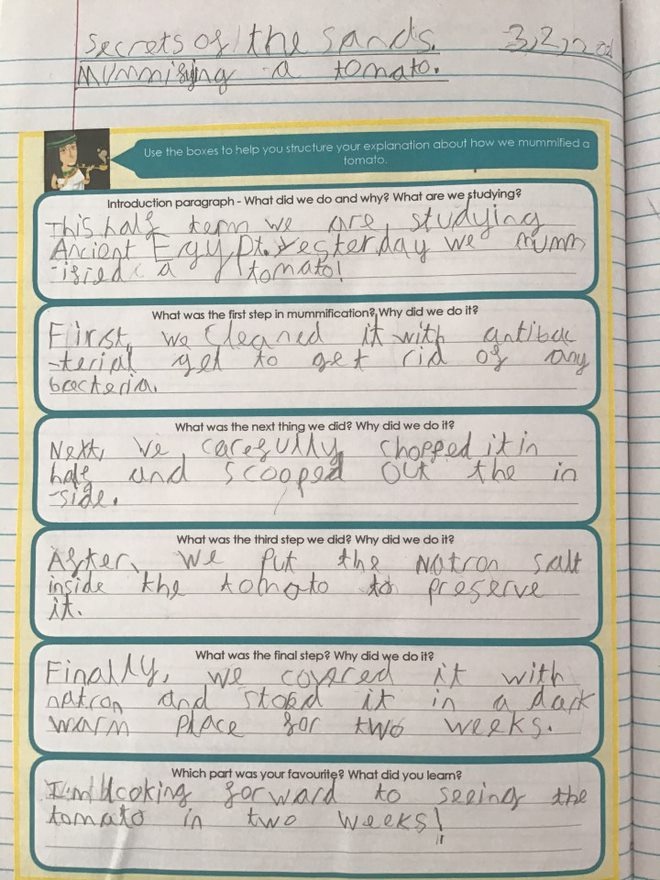 Secrets of the Sands. 3,2,22
Mummifying a tomato.
Use the boxes to help you structure your explanation about how we mummified a
tomato.
Introduction paragraph - What did we do and why? What are we studying?
This half term we are studying
Ancient Egypt. Yesterday we mumm
-ified a tomato!
What was the first step in mummification? Why did we do it?
First, we cleaned it with antibac
-terial gel to get rid of any
bacteria.
What was the next thing we did? Why did we do it?
Next, we carefully chopped it in
half and scooped out the in
-side.
What was the third step we did? Why did we do it?
After, we put the Natron salt
inside the tomato to preserve
it.
What was the final step? Why did we do it?
Finally, we covered it with
natron and stored it in a dark
warm place for two weeks.
Which part was your favourite? What did you learn?
I'm looking forward to seeing the
tomato in two weeks!